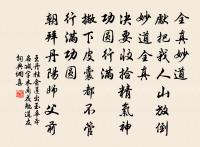 全真妙道
妙道全真
把我人山放倒
決要收拾精氣神
撇下皮囊都不管
行滿功圓
行滿功圓
朝拜丹陽師父前
王丹桂金蓮出玉華本
名減字木蘭花勉道友